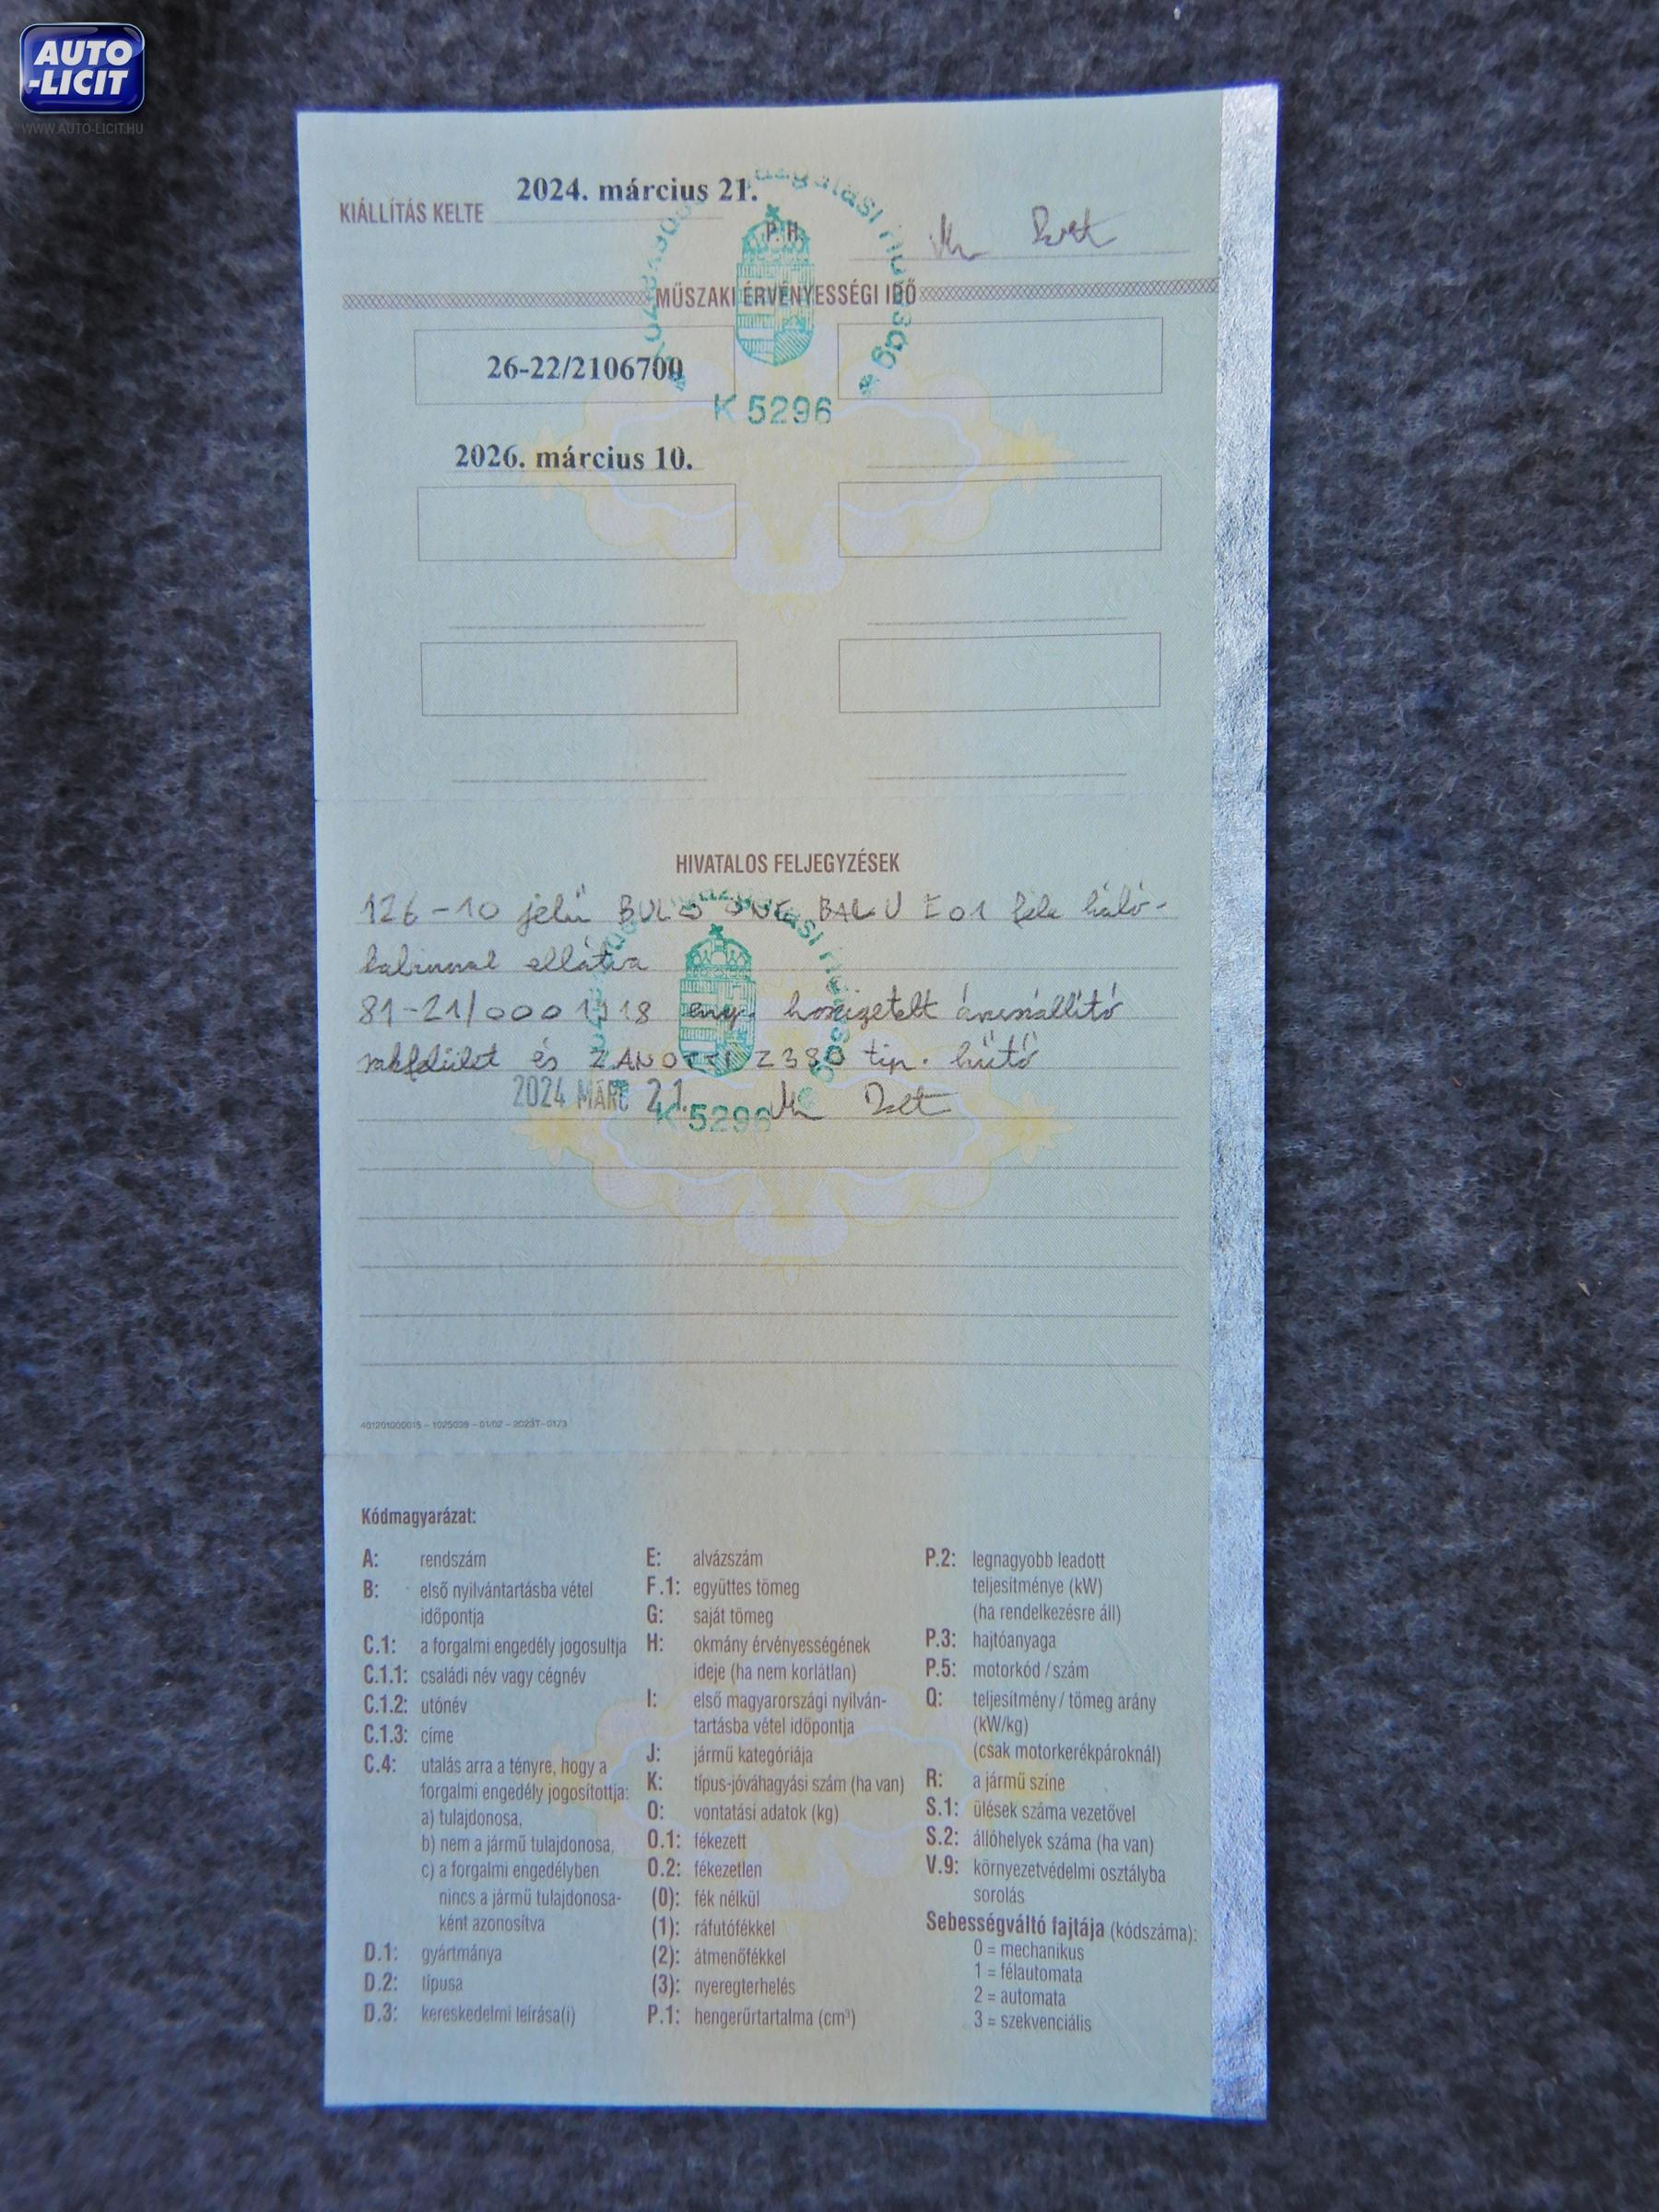 AUTO
-LICIT
WWW.AUTO-LICIT.HU
KIÁLLÍTÁS KELTE 2024. március 21.
P. H.
MŰSZAKI ÉRVÉNYESSÉGI IDŐ
26-22/2106700
K 5296
2026. március 10.
HIVATALOS FELJEGYZÉSEK
126-10 jelű BALU E01 háló-
ellátva
81-21/000 1118 eng. áruszállító
rakfelület és ZANOTTI Z380 tip. hűtő
2024 MÁRC 21.
K 5296
401201000015 – 1025039 – 01/02 – 2023T–0173
Kódmagyarázat:
A: rendszám
B: első nyilvántartásba vétel
időpontja
C.1: a forgalmi engedély jogosultja
C.1.1: családi név vagy cégnév
C.1.2: utónév
C.1.3: címe
C.4: utalás arra a tényre, hogy a
forgalmi engedély jogosítottja:
a) tulajdonosa,
b) nem a jármű tulajdonosa,
c) a forgalmi engedélyben
nincs a jármű tulajdonosa-
ként azonosítva
D.1: gyártmánya
D.2: típusa
D.3: kereskedelmi leírása(i)
E: alvázszám
F.1: együttes tömeg
G: saját tömeg
H: okmány érvényességének
ideje (ha nem korlátlan)
I: első magyarországi nyilván-
tartásba vétel időpontja
J: jármű kategóriája
K: típus-jóváhagyási szám (ha van)
O: vontatási adatok (kg)
O.1: fékezett
O.2: fékezetlen
(0): fék nélkül
(1): ráfutófékkel
(2): átmenőfékkel
(3): nyeregterhelés
P.1: hengerűrtartalma (cm³)
P.2: legnagyobb leadott
teljesítménye (kW)
(ha rendelkezésre áll)
P.3: hajtóanyaga
P.5: motorkód / szám
Q: teljesítmény / tömeg arány
(kW/kg)
(csak motorkerékpároknál)
R: a jármű színe
S.1: ülések száma vezetővel
S.2: állóhelyek száma (ha van)
V.9: környezetvédelmi osztályba
sorolás
Sebességváltó fajtája (kódszáma):
0 = mechanikus
1 = félautomata
2 = automata
3 = szekvenciális